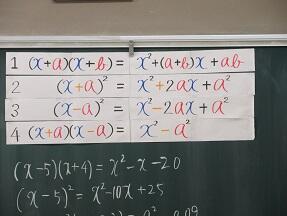 1 (x+a)(x+b) = x²+(a+b)x+ab
2 (x+a)² = x²+2ax+a²
3 (x-a)² = x²-2ax+a²
4 (x+a)(x-a) = x²-a²
(x-5)(x+4) = x²-x-20
(x-5)² = x²-10x+25